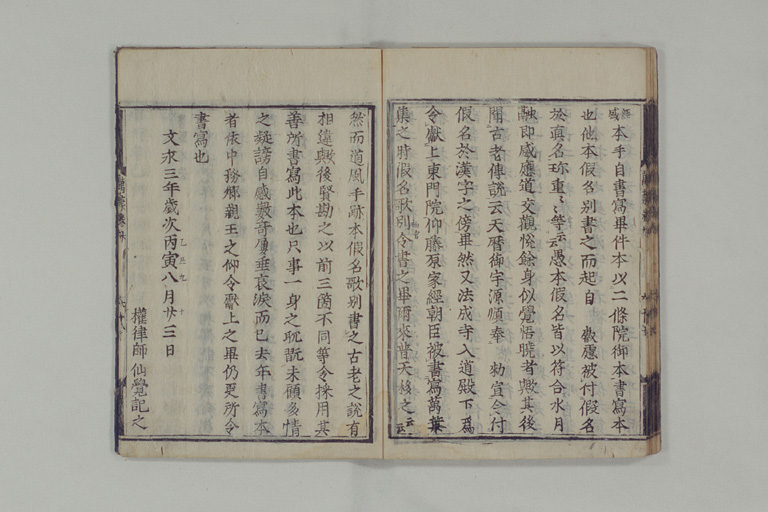 感本手自書寫畢件本以二條院御本書寫本
也他本假名別書之而起自 叡慮被付假名
於眞名珎重〻等云愚本假名皆以符合水月
融即感應道交觀悅餘身似覺悟曉者歟其後
聞古老傳說云天曆御宇源順奉 勅宣令付
假名於漢字之傍畢然又法成寺入道殿下爲
令獻上東門院仰藤原家經朝臣被書寫萬葉
集之時假名歌別令書之畢尓來普天移之云云
然而道風手跡本假名歌別書之古老之說有
相違歟後賢勘之以前三箇不同等令採用其
善所書寫此本也只事一身之耽翫未顧多情
之疑謗自感數奇屢垂哀淚而已去年書寫本
者依中務卿親王之仰令獻上之畢仍更所令
書寫也
文永三年歲次丙寅八月廿三日
權律師仙覺記之